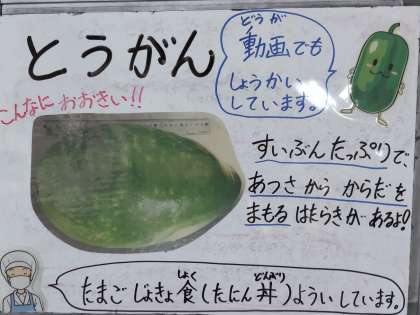 とうがん
動画でも
しょうかい
しています。
こんなに おおきい!!
すいぶんたっぷりで、
あつさから からだを
まもる はたらきがあるよ!
たまごじょきょ食(たにん丼)ようい しています。